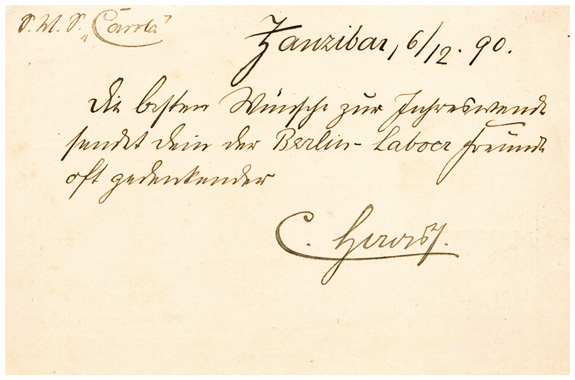 S. M. S. „Carola“
Zanzibar, 6/12. 90.
Die besten Wünsche zur Jahreswende
sendet Dein der Berlin-Laboer Freunde
oft gedenkender
C.